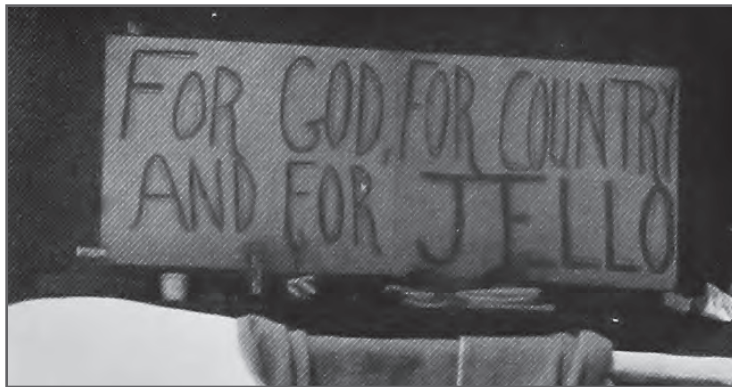 FOR GOD, FOR COUNTRY
AND FOR JELLO